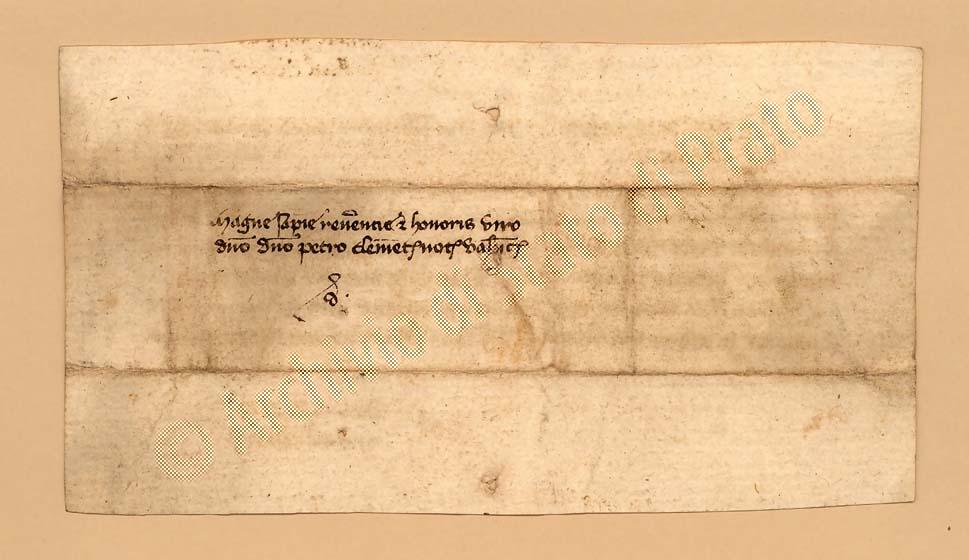 Magne sapie reverentie & honoris viro
dno dno petro clemet not valentie
d
© Archivio di Stato di Prato